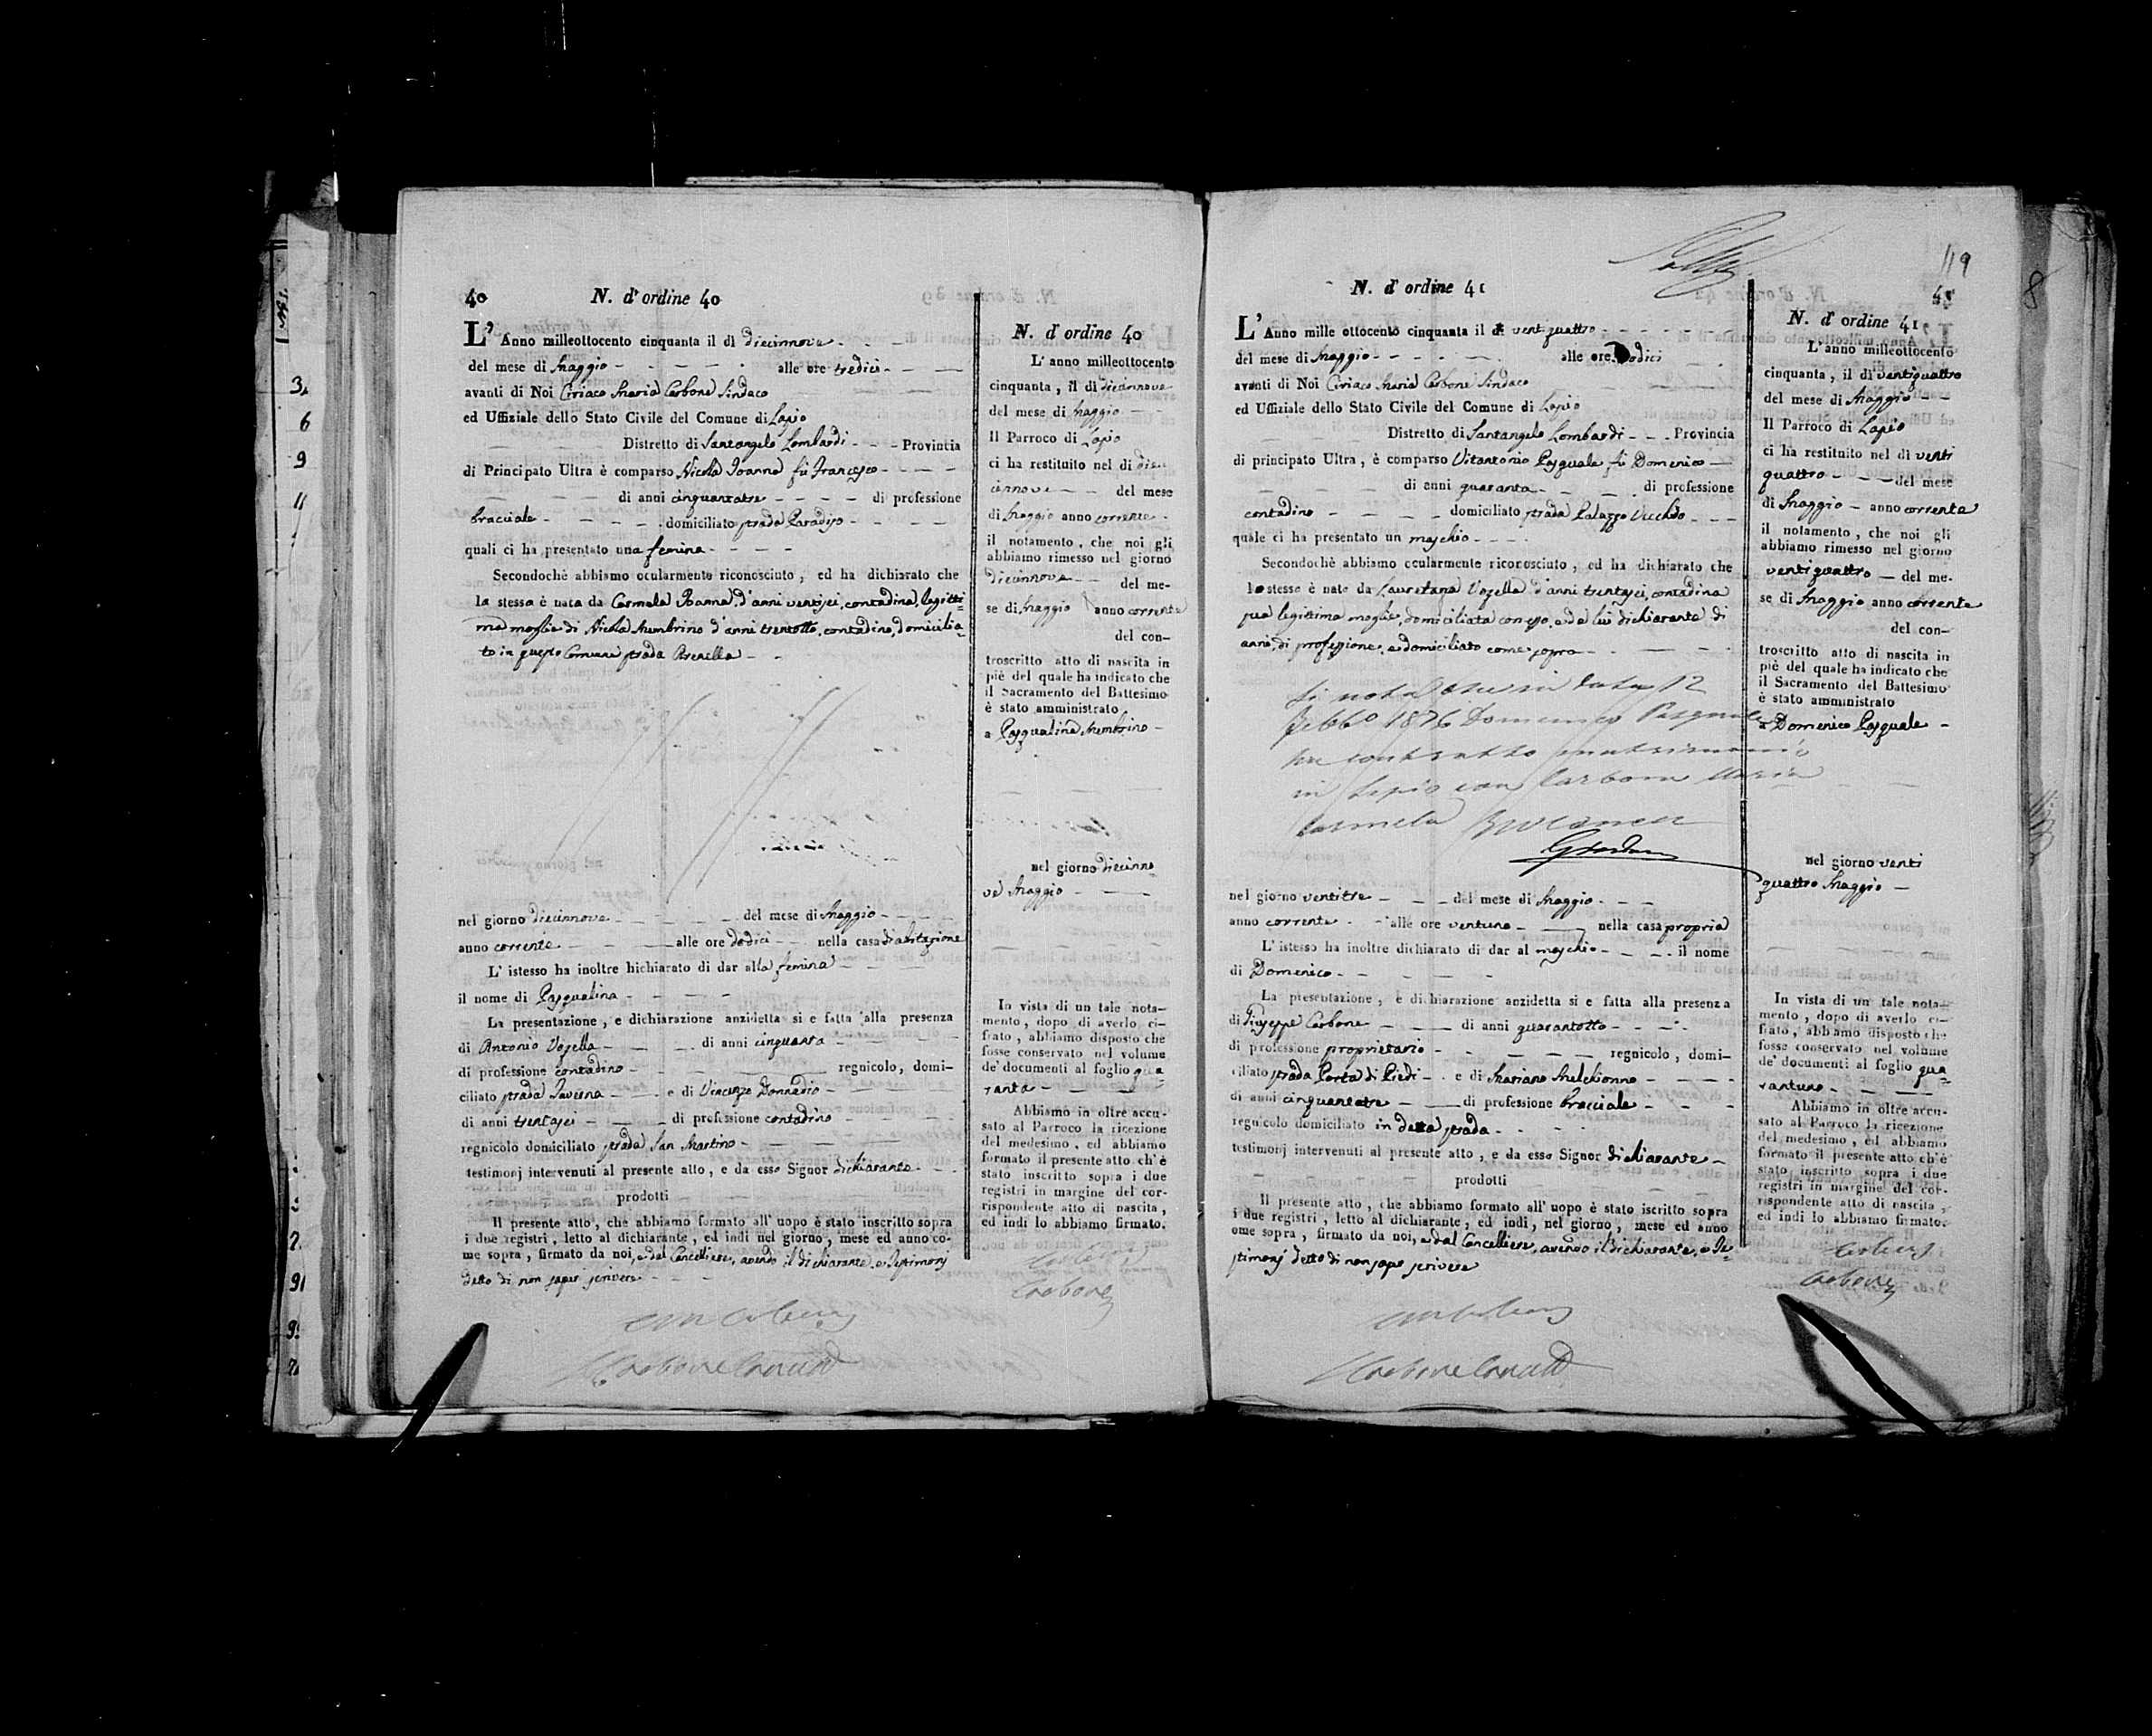 40
N. d'ordine 40
L' Anno milleottocento cinquanta il dì diecinnove
del mese di Maggio alle ore tredici
avanti di Noi Ciriaco Maria Carbone Sindaco
ed Uffiziale dello Stato Civile del Comune di Lapio
Distretto di Santangelo Lombardi Provincia
di Principato Ultra è comparso Nicola Ioanna fù Francesco
di anni cinquantatre di professione
bracciale domiciliato strada Paradiso
quali ci ha presentato una femina
Secondochè abbiamo ocularmente riconosciuto, ed ha dichiarato che
la stessa è nata da Carmela Ioanna, d'anni ventisei, contadina, legitti-
ma moglie di Nicola Membrino d'anni trentotto, contadino, domicilia-
to in questo Comune strada
nel giorno diecinnove del mese di Maggio
anno corrente alle ore dodici nella casa di abitazione
L' istesso ha inoltre hichiarato di dar alla femina
il nome di Pasqualina
La presentazione, e dichiarazione anzidetta si e fatta alla presenza
di Antonio Vozella di anni cinquanta
di professione contadino regnicolo, domi-
ciliato strada Taverna e di Vincenzo Donnadio
di anni trentasei di professione contadino
regnicolo domiciliato strada San Martino
testimonj intervenuti al presente atto, e da esso Signor dichiarante
prodotti
Il presente atto, che abbiamo formato all' uopo è stato inscritto sopra
i due registri, letto al dichiarante, ed indi nel giorno, mese ed anno co-
me sopra, firmato da noi, e dal Cancelliere, avendo il dichiarante, e Testimonj
detto di non saper scrivere
Carbone Cancell
N. d'ordine 40
L' anno milleottocento
cinquanta, il dì diecinnove
del mese di Maggio
Il Parroco di Lapio
ci ha restituito nel dì diec
innove del mese
di Maggio anno corrente
il notamento, che noi gli
abbiamo rimesso nel giorno
diecinnove del me-
se di Maggio anno corrente
del con-
troscritto atto di nascita in
piè del quale ha indicato che
il Sacramento del Battesimo
è stato amministrato
a Pasqualina Membrino
nel giorno diecinno
ve Maggio
In vista di un tale nota-
mento, dopo di averlo ci-
frato, abbiamo disposto che
fosse conservato nel volume
de' documenti al foglio qua-
ranta
Abbiamo in oltre accu-
sato al Parroco la ricezione
del medesimo, ed abbiamo
formato il presente atto ch'è
stato inscritto sopra i due
registri in margine del cor-
rispondente atto di nascita,
ed indi lo abbiamo firmato.
Carbone
49
41
N. d'ordine 41
L' Anno mille ottocento cinquanta il dì ventiquattro
del mese di Maggio alle ore dodici
avanti di Noi Ciriaco Maria Carbone Sindaco
ed Uffiziale dello Stato Civile del Comune di Lapio
Distretto di Santangelo Lombardi Provincia
di principato Ultra, è comparso Vitantonio Pasquale fù Domenico
di anni quaranta di professione
contadino domiciliato strada Palazzo Vecchio
quale ci ha presentato un maschio
Secondochè abbiamo ocularmente riconosciuto, ed ha dichiarato che
lo stesso è nato da Lauretana Vozella d'anni trentasei, contadina
sua legittima moglie, domiciliata con esso, e da lui dichiarante di
anni, di professione, e domiciliato come sopra
Si nota che in data 12
Febb.o 1876 Domenico Pasquale
ha contratto matrimonio
in Lapio con Carbone Maria
Carmela
nel giorno ventitre del mese di Maggio
anno corrente alle ore ventuno nella casa propria
L' istesso ha inoltre dichiarato di dar al maschio il nome
di Domenico
La presentazione, e dichiarazione anzidetta si e fatta alla presenza
di Giuseppe Carbone di anni quarantotto
di professione proprietario regnicolo, domi-
ciliato strada Porta di Piedi e di Mariano Melchionno
di anni cinquantatre di professione bracciale
regnicolo domiciliato in detta strada
testimonj intervenuti al presente atto, e da esso Signor dichiarante
prodotti
Il presente atto, che abbiamo formato all' uopo è stato iscritto sopra
i due registri, letto al dichiarante, ed indi, nel giorno, mese ed anno
ome sopra, firmato da noi, e dal Cancelliere, avendo il Dichiarante, e Te-
stimonj detto di non saper scrivere
Carbone Cancell
N. d'ordine 41
L' anno milleottocento
cinquanta, il dì ventiquattro
del mese di Maggio
Il Parroco di Lapio
ci ha restituito nel dì venti
quattro del mese
di Maggio anno corrente
il notamento, che noi gli
abbiamo rimesso nel giorno
ventiquattro del me-
se di Maggio anno corrente
del con-
troscritto atto di nascita in
piè del quale ha indicato che
il Sacramento del Battesimo
è stato amministrato
a Domenico Pasquale
nel giorno venti
quattro Maggio
In vista di un tale nota-
mento, dopo di averlo ci-
frato, abbiamo disposto che
fosse conservato nel volume
de' documenti al foglio qua-
rantuno
Abbiamo in oltre accu-
sato al Parroco la ricezione
del medesimo, ed abbiamo
formato il presente atto ch'è
stato inscritto sopra i due
registri in margine del cor-
rispondente atto di nascita,
ed indi lo abbiamo firmato.
Carbone